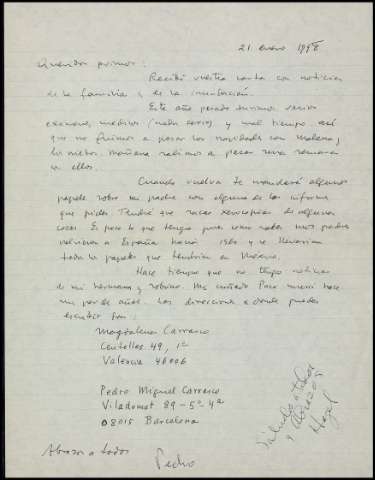 21 enero 1998
Queridos primos:
Recibí vuestra carta con noticias
de la familia y de la inundación.
Este año pasado tuvimos varios
exámenes médicos (nada serio) y mal tiempo así
que no fuimos a pasar las navidades con Malena y
los nietos. Mañana salimos a pasar una semana
con ellos.
Cuando vuelva te mandaré algunos
papeles sobre mi padre con algunos de los informes
que pides. Tendré que sacar xerocopias de algunas
cosas. Es poco lo que tengo pues como sabes mis padres
volvieron a España hacia 1960 y se llevaron
todos los papeles que tendrían en México.
Hace tiempo que no tengo noticias
de mi hermana y sobrino. Mi cuñado Paco murió hace
un par de años. Las direcciones a donde puedes
escribir son:
Magdalena Carrasco
Centelles 49, 1ª
Valencia 46006
Pedro Miguel Carrasco
Viladomat 89-5º-4ª
08015 Barcelona
Saludos a todos
y abrazos
Abrazos a todos
Pedro